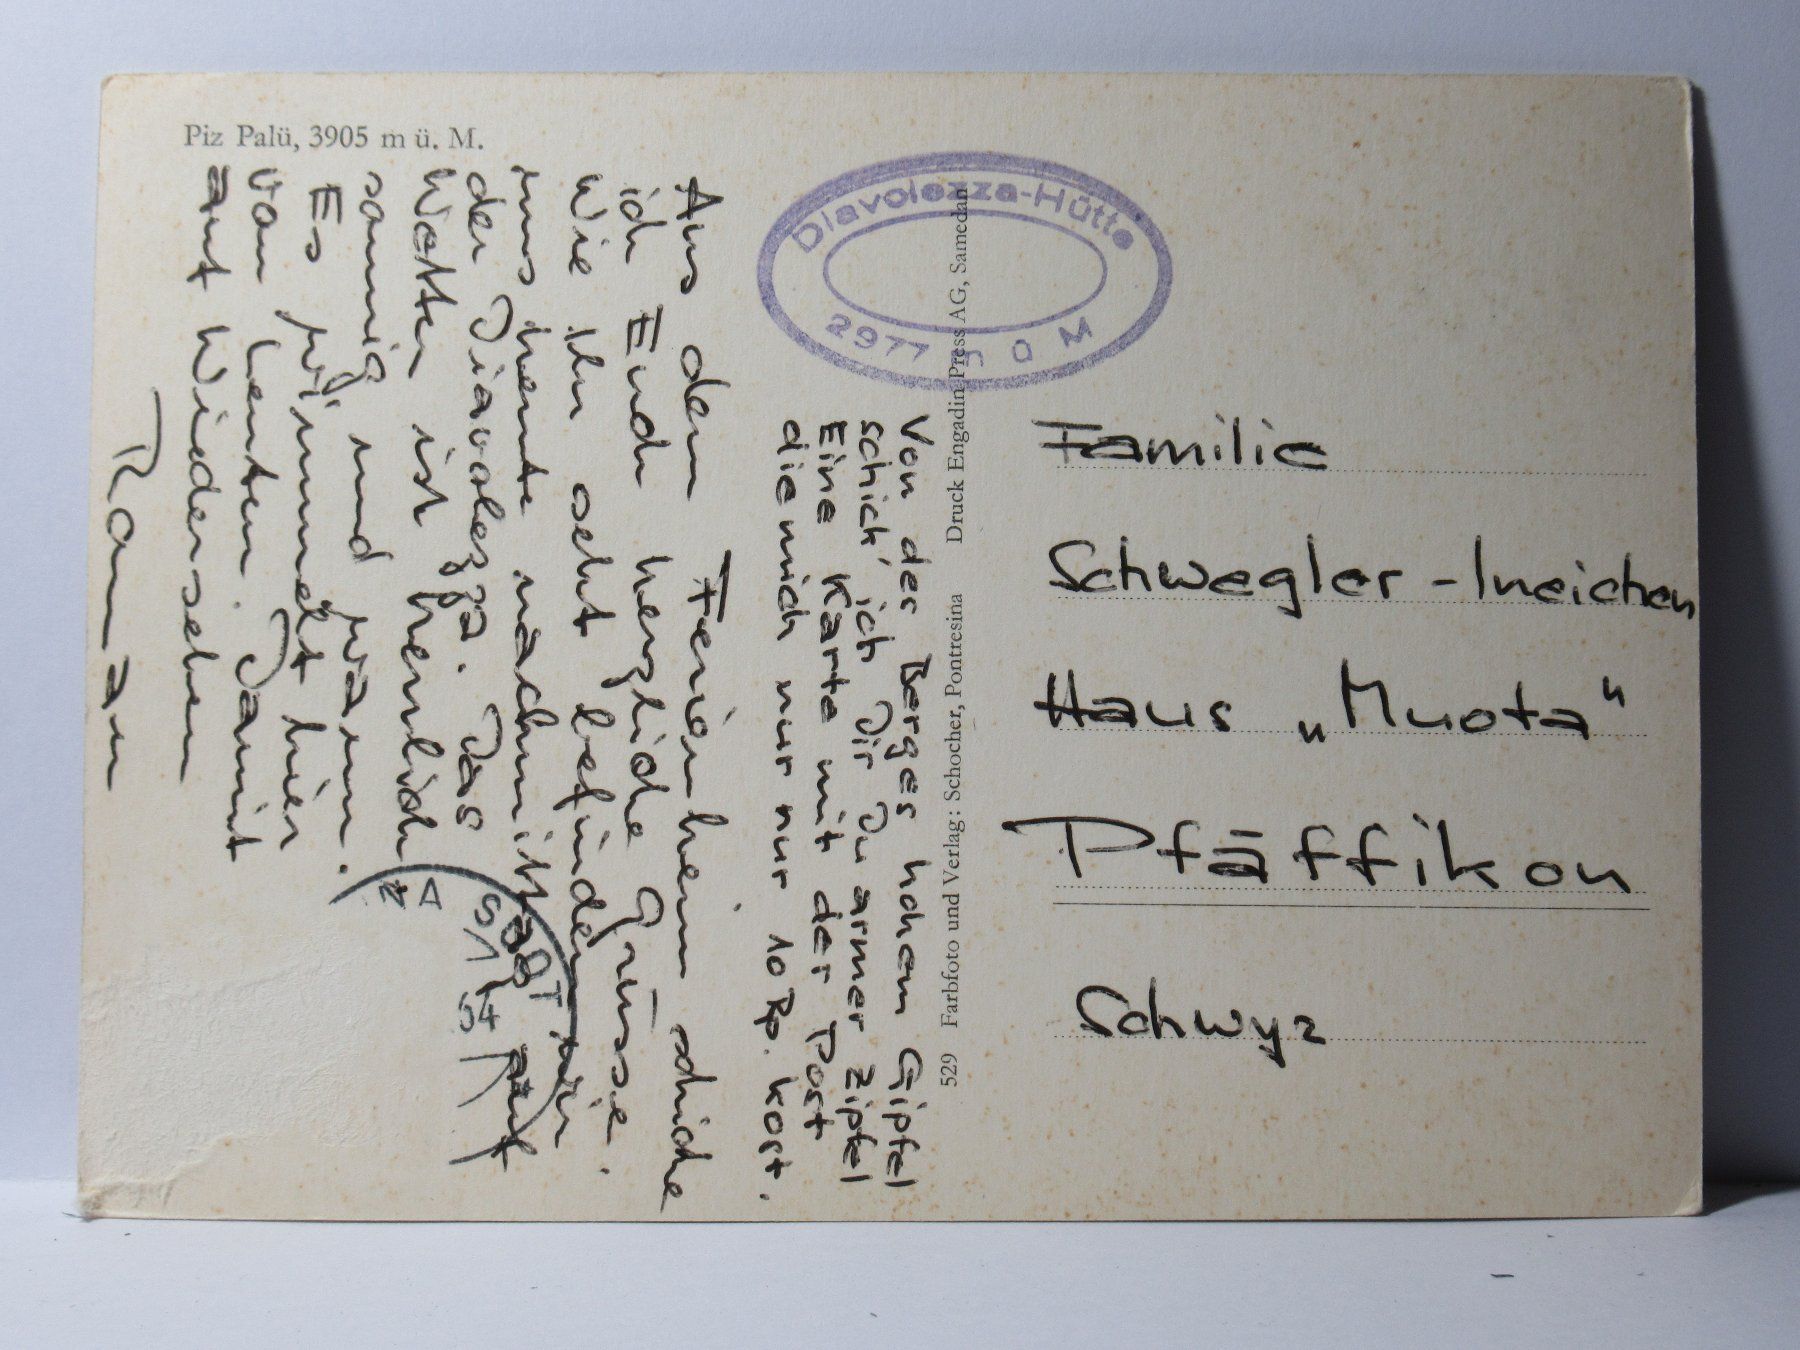 Piz Palü, 3905 m ü. M.
Aus dem Ferienheim schicke
ich Euch herzliche Grüsse.
Wie Ihr seht befinden wir
uns heute nachmittag auf
der Diavolezza. Das
Wetter ist herrlich
sonnig und warm.
Es wimmelt hier
von Leuten. Damit
auf Wiedersehen
Roman
Von des Berges hohem Gipfel
schick' ich Dir Du armer Zipfel
Eine Karte mit der Post
die mich nur nur 10 Rp. kost.
Diavolezza-Hütte
2977 M
529 Farbfoto und Verlag: Schocher, Pontresina Druck Engadin Press AG, Samedan
Familie
Schwegler-Ineichen
Haus „Muota"
Pfäffikon
Schwyz